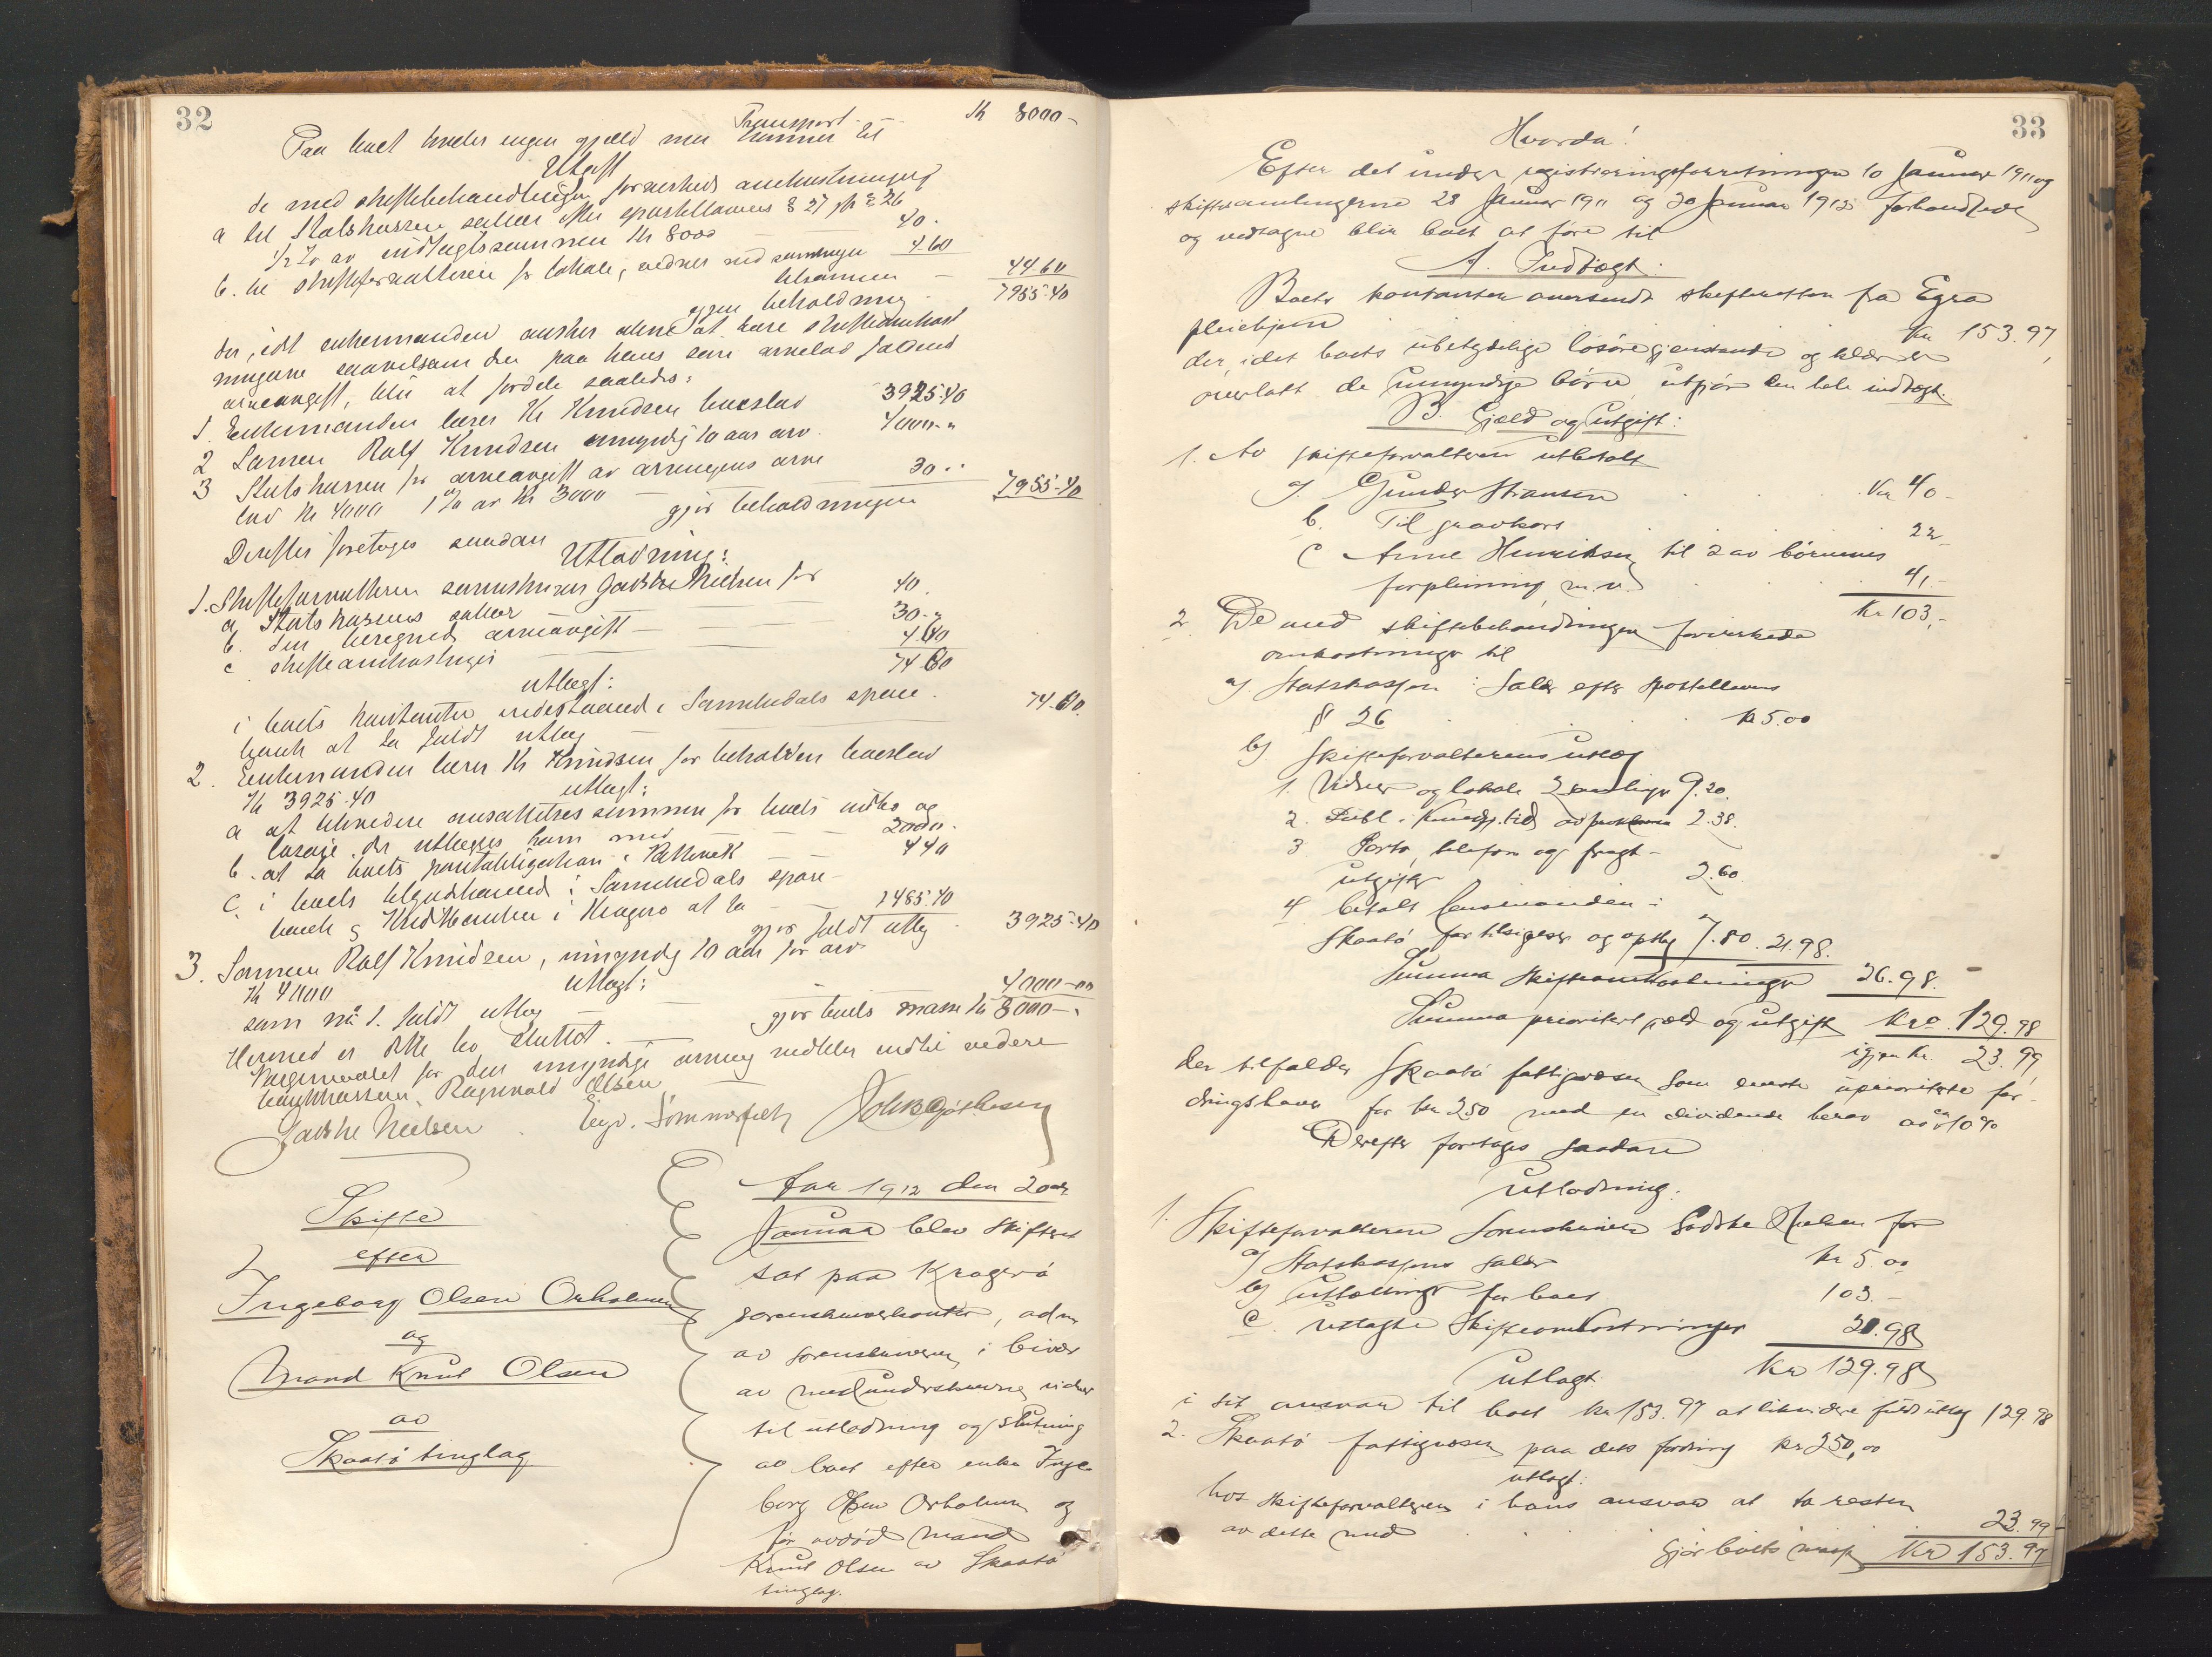 32
Transport Kr 8000-
Paa boet hviler ingen gjæld men kommer til
Utgift
de med skiftebehandlingen forvirkede omkostninger
a til Statskassen salær efter sportellovens § 27 jfr § 26
1/2 % av indtægtssummen Kr 8000 40.
b. til skifteforvalteren for lokale, vidner ved samlingen 4.60
tilsammen 44.60
igjen beholdning 7955.40
der, idet enkemanden ønsker alene at bære skifteomkost
ningerne saavelsom den paa hans søns arvelod faldende
arveavgift, blir at fordele saaledes:
1. Enkemanden Knudsen boeslod 3925.40
2 Sønnen Rolf Knudsen umyndig 10 aar arv. 4000.-
3 Statskassen for arveavgift av arvingens arve
lod Kr 4000 1 % av Kr 3000 30..
gjør beholdningen 7955.40
Derefter foretages saadan
Utlodning:
1. Skifteforvalteren sorenskriver Godske Nielsen for
a Statskassens salær 40.
b. den beregnede arveavgift 30.-
c skifteomkostninger 4.60
74.60
utlægt:
i boets kontanter indestaaende i Sannikedals spare
bank at ta fuldt utlæg 74.60.
2. Enkemanden Knudsen for beholden boeslod
Kr 3925.40 utlægt:
a at likvidere ansættelsessummen for boets indbo og
løsøre der utlægges ham med 2000.
b. at ta boets pantobligation 440
c. i boets tilgodehavende i Sannikedals spare-
bank og Kreditbanken i Kragerø at ta 1485.40
gjør fuldt utlæg 3925.40
3. Sønnen Rolf Knudsen, umyndig 10 aar for arv
Kr 4000 utlægt:
som nr 1. fuldt utlæg 4000-00
gjør boets masse Kr 8000-.
Hermed er dette bo sluttet.
Vergemaalet for den umyndige arving indtil videre
Ragnvald Olsen
Godske Nielsen
Skifte
efter
Ingeborg Olsen Orholmen
og
Mand Knut Olsen
av
Skaatø tinglag
Aar 1912 den 20de
Januar blev skifteret
sat paa Kragerø
sorenskriverkontor, adm
av sorenskriveren i bivær
av medunderskrevne vidner
til utlodning og slutning
av boet efter enke Inge
borg Olsen Orholmen og
før avdød mand
Knut Olsen av Skaatø
tinglag.
33
Hvorda!
Efter det under registreringsforretningen 10 Januar 1911 og
skiftesamlingerne 28 Januar 1911 og 20 Januar 1912 forhandlede
og vedtagne blir boet at føre til
A. Indtægt.
Boets kontanter oversendt skifteretten fra Egra
pleiehjem Kr 153.97
der, idet boets ubetydelige løsøregjenstande og klær er
overlatt de umyndige børn, utgjør den hele indtægt.
B. Gjæld og utgift:
1. Av skifteforvalteren utbetalt
a) Gunder Hansen Kr 40-
b. Til gravkors 22-
c Anne Henriksen til 2 av børnenes
forpleining m.v. 41,-
Kr 103,-
2. De med skiftebehandlingen forvirkede
omkostninger til
a) Statskassen: Salær efter sportellovens
§ 26 kr 5.00
b) Skifteforvalterens utlæg
1. Vidner og lokale 2 samlinger 9.20.
2. Publ. i Kundgj.tid. av proklama 2.38.
3 Porto, telefon og fragt-
utgifter 2.60.
4 betalt lensmanden i
Skaatø for tilsigelser og opslag 7.80. 21.98.
Summa skifteomkostninger 26.98.
Summa prioritert gjæld og utgift Kr. 129.98
igjen Kr. 23.99
der tilfalder Skaatø fattigvæsen som eneste uprioriterte for-
dringshaver for kr 250 med en dividende herav av ca 10 %
Derefter foretages saadan
utlodning.
1. Skifteforvalteren Sorenskriver Godske Nielsen for
a) Statskassens salær kr 5.00
b) utbetalinger for boet 103.-
c. utlagte skifteomkostninger 21.98
utlagt Kr 129.98
i sit ansvar til boet kr 153.97 at likvidere fuldt utlæg 129.98
2. Skaatø fattigvæsen paa dets fordring kr 250,00
utlagt:
hos skifteforvalteren i hans ansvar at ta resten
av dette med 23.99
Gjør boets masse Kr 153.97